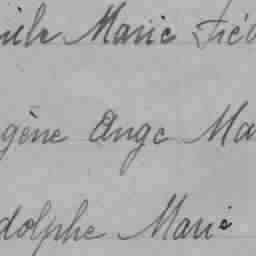 Marie
gène Ange Ma
dolphe Marie